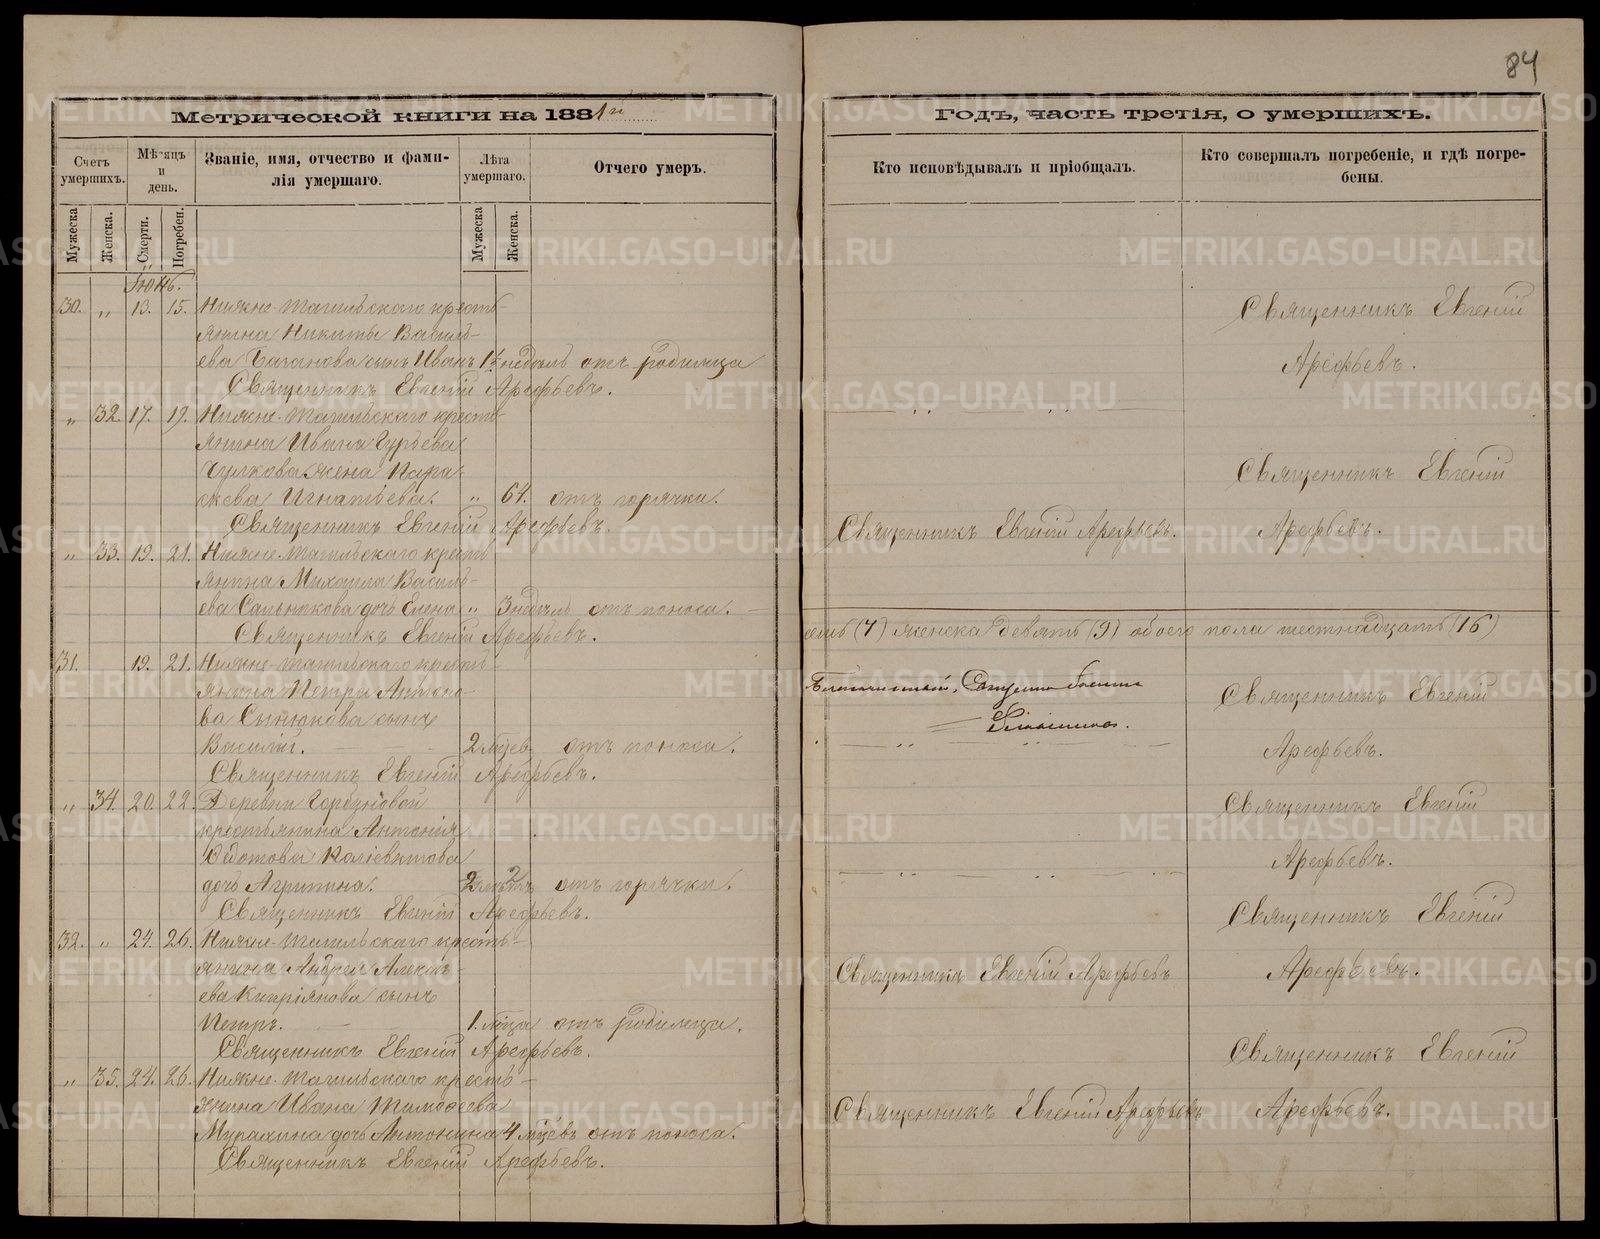 84
Метрической книги на 1881й
Годъ, часть третія, о умершихъ.
Счетъ умершихъ.
Мѣсяцъ и день.
Званіе, имя, отчество и фами-
лія умершаго.
Лѣта умершаго.
Отчего умеръ.
Кто исповѣдывалъ и пріобщалъ.
Кто совершалъ погребеніе, и гдѣ погре-
бены.
Мужеска
Женска.
Смерти.
Погребен.
Мужеска
Женска.
Іюнь.
30. „ 13. 15. Нижне-Тагильскаго кресть-
янина Никиты Василь-
ева сынъ Иванъ 1½ недѣль отъ родимца
Священникъ Евгеній Арефьевъ.
Священникъ Евгеній
Арефьевъ.
„ 32. 17. 19. Нижне-Тагильскаго кресть-
янина Ивана Гурьева
Чулкова жена Пара-
скева Игнатьева. „ 64. отъ горячки.
Священникъ Евгеній Арефьевъ.
Священникъ Евгеній Арефьевъ.
Священникъ Евгеній
Арефьевъ.
„ 33. 19. 21. Нижне-Тагильскаго кресть-
янина Михаила Василь-
ева Сальникова дочь Елена „ 3 недѣль отъ поноса.
Священникъ Евгеній Арефьевъ.
семь (7) женска девять (9) обоего пола шестнадцать (16)
31. 19. 21. Нижне-Тагильскаго кресть-
янина Петра
ва сынъ
Василій. 2 мѣсев. отъ поноса.
Священникъ Евгеній Арефьевъ.
Благочинный, Священно
Священникъ Евгеній
Арефьевъ.
„ 34. 20. 22. Деревни Горбуновой
крестьянина Антонія
Ѳедотова
дочь Агрипина. 2 отъ горячки.
Священникъ Евгеній Арефьевъ.
Священникъ Евгеній
Арефьевъ.
32. „ 24. 26. Нижне-Тагильскаго кресть-
янина Андрея Алексѣ-
ева Кипріянова сынъ
Петръ. 1. мѣсца отъ родимца.
Священникъ Евгеній Арефьевъ.
Священникъ Евгеній Арефьевъ
Священникъ Евгеній
Арефьевъ.
„ 35. 24. 26. Нижне-Тагильскаго кресть-
янина Ивана Тимофеева
Мурахина дочь Антонина 4 мѣсцевъ отъ поноса.
Священникъ Евгеній Арефьевъ.
Священникъ Евгеній Арефьевъ
Священникъ Евгеній
Арефьевъ.
METRIKI.GASO-URAL.RU